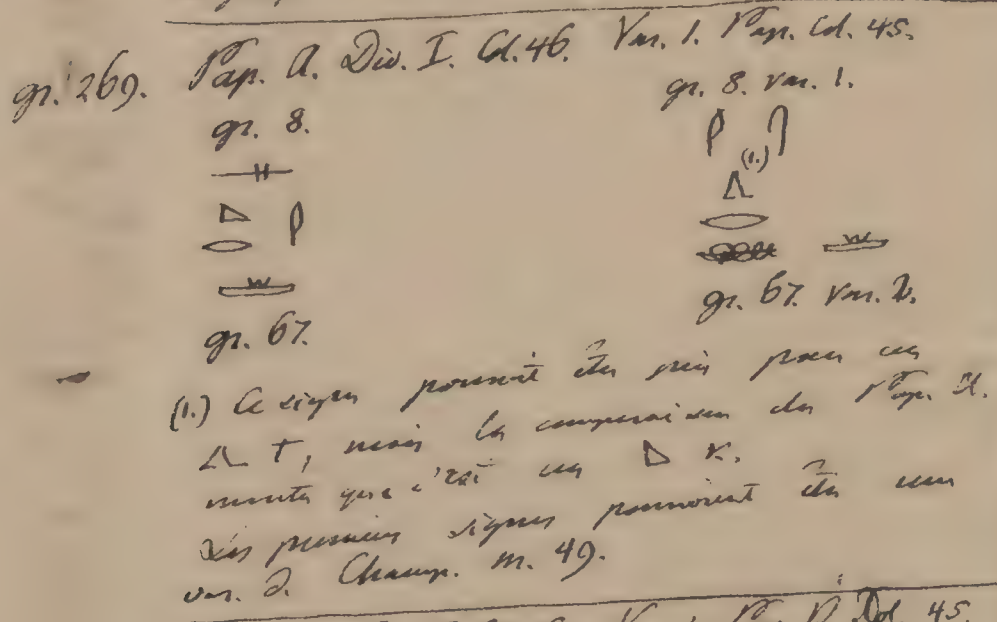 gr. 269. Pap. A. Div. I. Col. 46. Var. 1. Pap. Col. 45.
gr. 8. gr. 8. var. 1.
(1.)
gr. 67. gr. 67. var. 2.
(1.) Ce signe pourroit être pris pour un
T, mais la comparaison du Pap. A.
montre que c'est un K.
Les premiers signes pourroient être une
var. d. Champ. m. 49.
Col. 45.